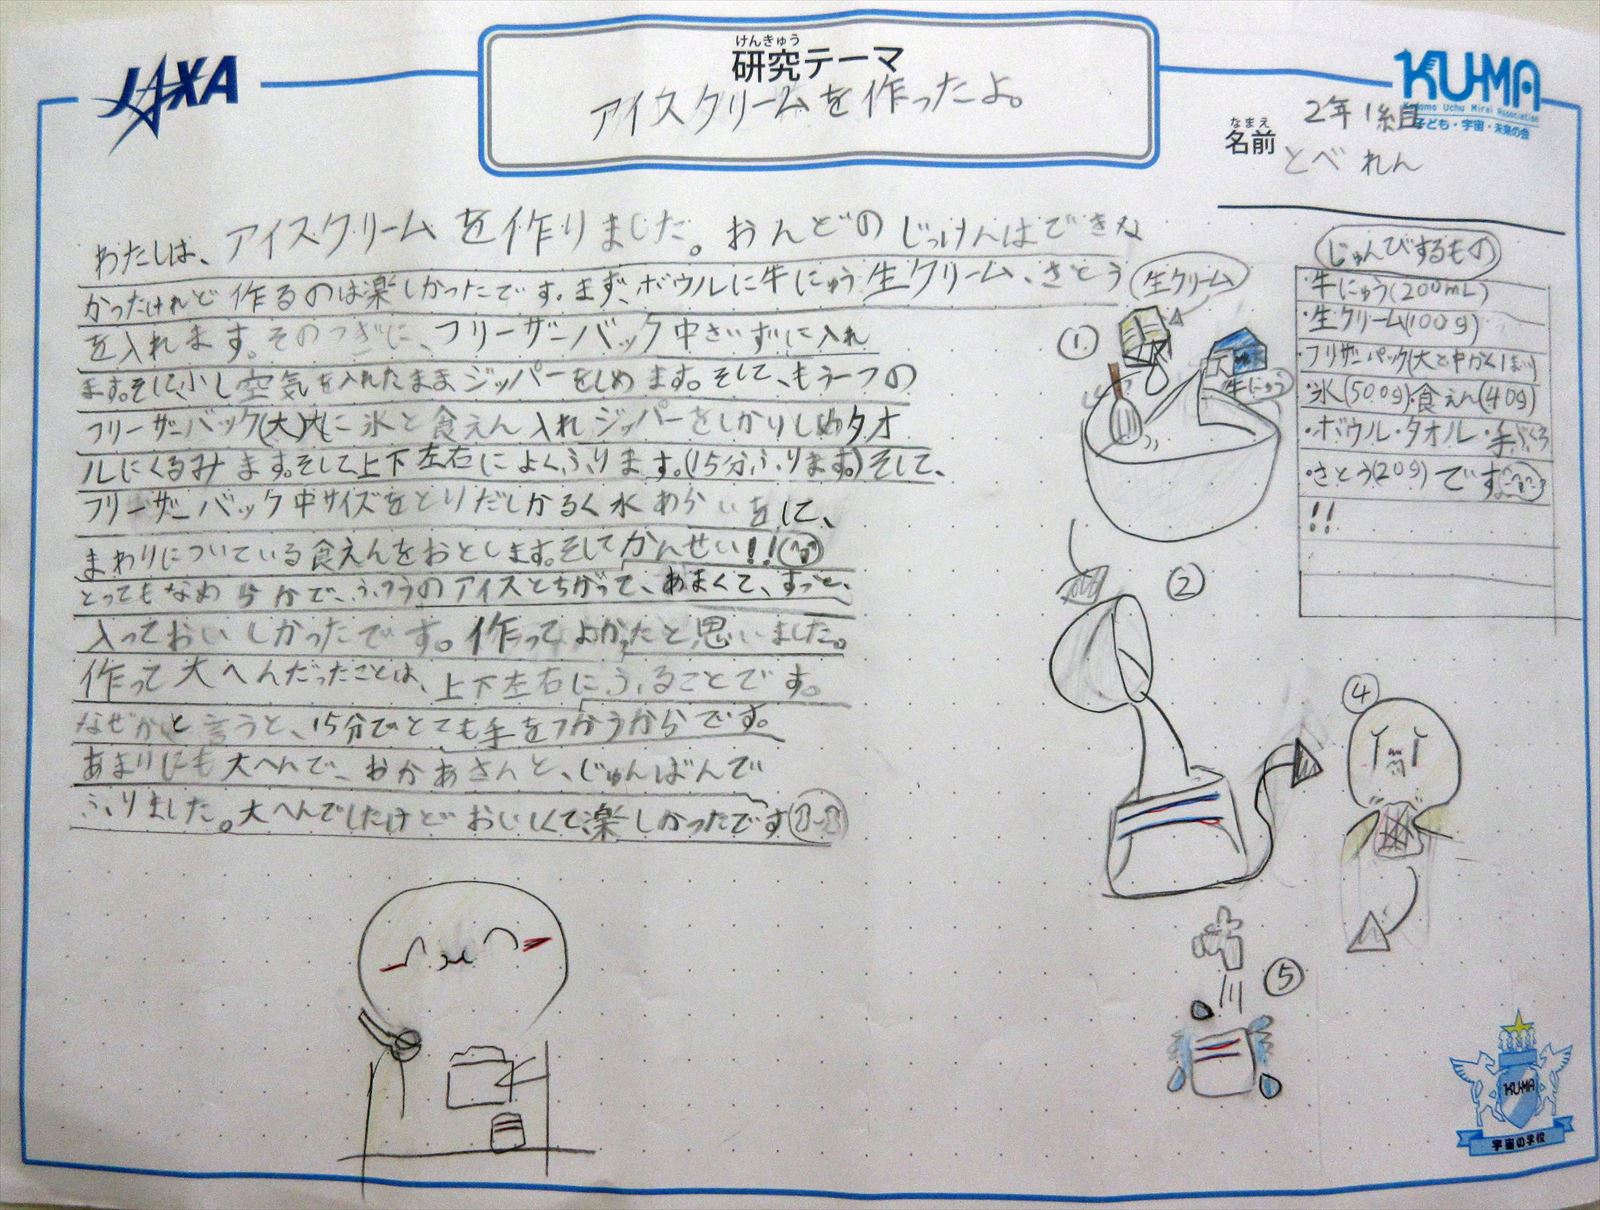 JAXA
けんきゅう
研究テーマ
アイスクリームを作ったよ。
KU-MA
Kodomo Uchu Mirai Association
子ども・宇宙・未来の会
なまえ
名前
2年1組
とべ れん
わたしは、アイスクリームを作りました。おんどのじっけんはできな
かったけれど作るのは楽しかったです。まず、ボウルに牛にゅう生クリーム、さとう
を入れます。そのつぎに、フリーザーバック中さいずに入れ
ます。そしに少し空気を入れたままジッパーをしめます。そして、もう一つの
フリーザーバック(大)内に氷と食えん入れジッパーをしかりしめタオ
ルにくるみます。そして上下左右によくふります。(15分ふります。)そして、
フリーザーバック中サイズをとりだしかるく水あらいをして、
まわりについている食えんをおとします。そしてかんせい!!
とってもなめらかで、ふつうのアイスとちがって、あまくて、すっと、
入っておいしかったです。作ってよかったと思いました。
作って大へんだったことは、上下左右にふることです。
なぜかと言うと、15分でとても手をつかうからです。
あまりにも大へんで、おかあさんと、じゅんばんで
ふりました。大へんでしたけどおいしくて楽しかったです
じゅんびするもの
・牛にゅう(200mL)
・生クリーム(100g)
・フリザーパック(大と中かく1まい)
・氷(500g)・食えん(40g)
・ボウル・タオル・手ぶくろ
・さとう(20g)です。
!!
生クリーム
①
牛にゅう
②
④
⑤
KU-MA
宇宙の学校